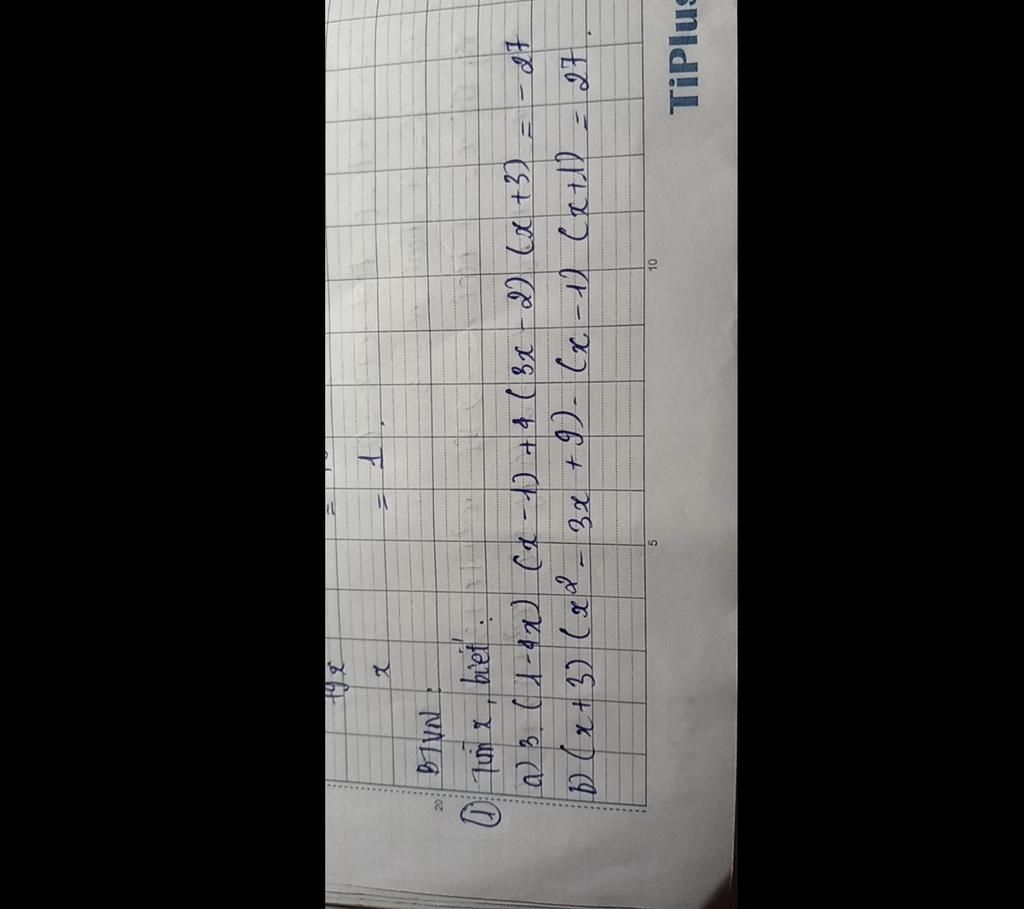 = 1.
x
BTVN :
① Tìm x, biết :
a) 3. (1-4x) (x-1) + 4 (3x-2) (x+3) = -27
b) (x+3) (x² - 3x + 9) - (x-1) (x+1) = 27.
20
5
10
TiPlus